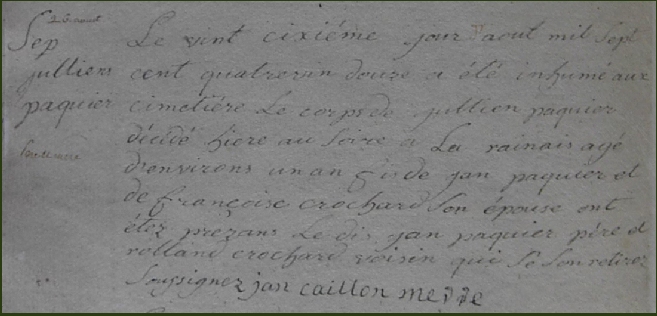 26 aout
Sep
jullien
paquier
Le vint cixiéme jour d'aout mil sept
cent quatrevin douze a été inhumé aux
cimetiére Le corps de jullien paquier
décédé hiere au soire a La rainais agé
d'environs un an fis de jan paquier et
de françoise crochard son épouse ont
étez prezans Le dis jan paquier pére et
rolland crochard voisin qui se son retirez
soussignez jan caillon